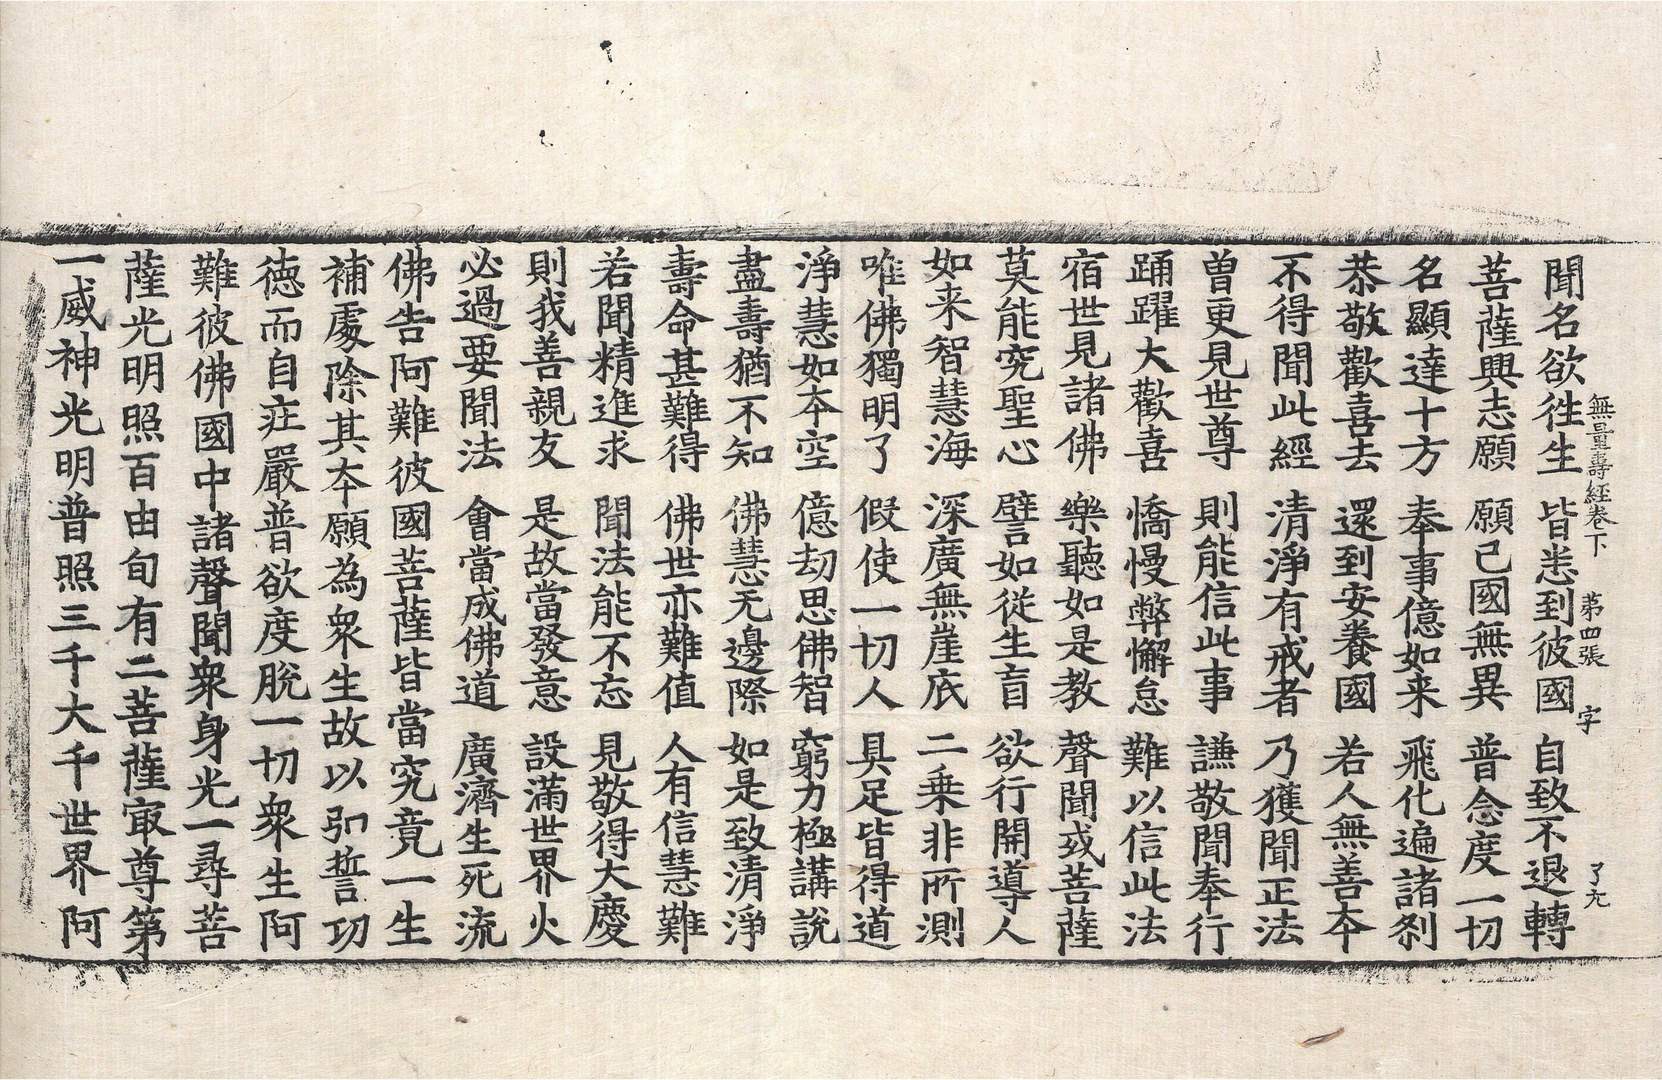 無量壽經卷下　第四張　字　了九
聞名欲徃生　皆悉到彼國　自致不退轉
菩薩興志願　願己國無異　普念度一切
名顯達十方　奉事億如来　飛化遍諸刹
恭敬歡喜去　還到安養國　若人無善夲
不得聞此經　清淨有戒者　乃獲聞正法
曽更見世尊　則能信此事　謙敬聞奉行
踊躍大歡喜　憍慢弊懈怠　難以信此法
宿世見諸佛　樂聽如是教　聲聞或菩薩
莫能究聖心　譬如從生盲　欲行開導人
如来智慧海　深廣無崖底　二乗非所測
唯佛獨明了　假使一切人　具足皆得道
淨慧如夲空　億劫思佛智　窮力極講說
盡壽猶不知　佛慧无邊際　如是致清淨
壽命甚難得　佛世亦難值　人有信慧難
若聞精進求　聞法能不忘　見敬得大慶
則我善親友　是故當發意　設滿世界火
必過要聞法　會當成佛道　廣濟生死流
佛告阿難彼國菩薩皆當究竟一生
補處除其夲願為衆生故以弘誓功
德而自庄嚴普欲度脫一切衆生阿
難彼佛國中諸聲聞衆身光一尋菩
薩光明照百由旬有二菩薩㝡尊第
一威神光明普照三千大千世界阿